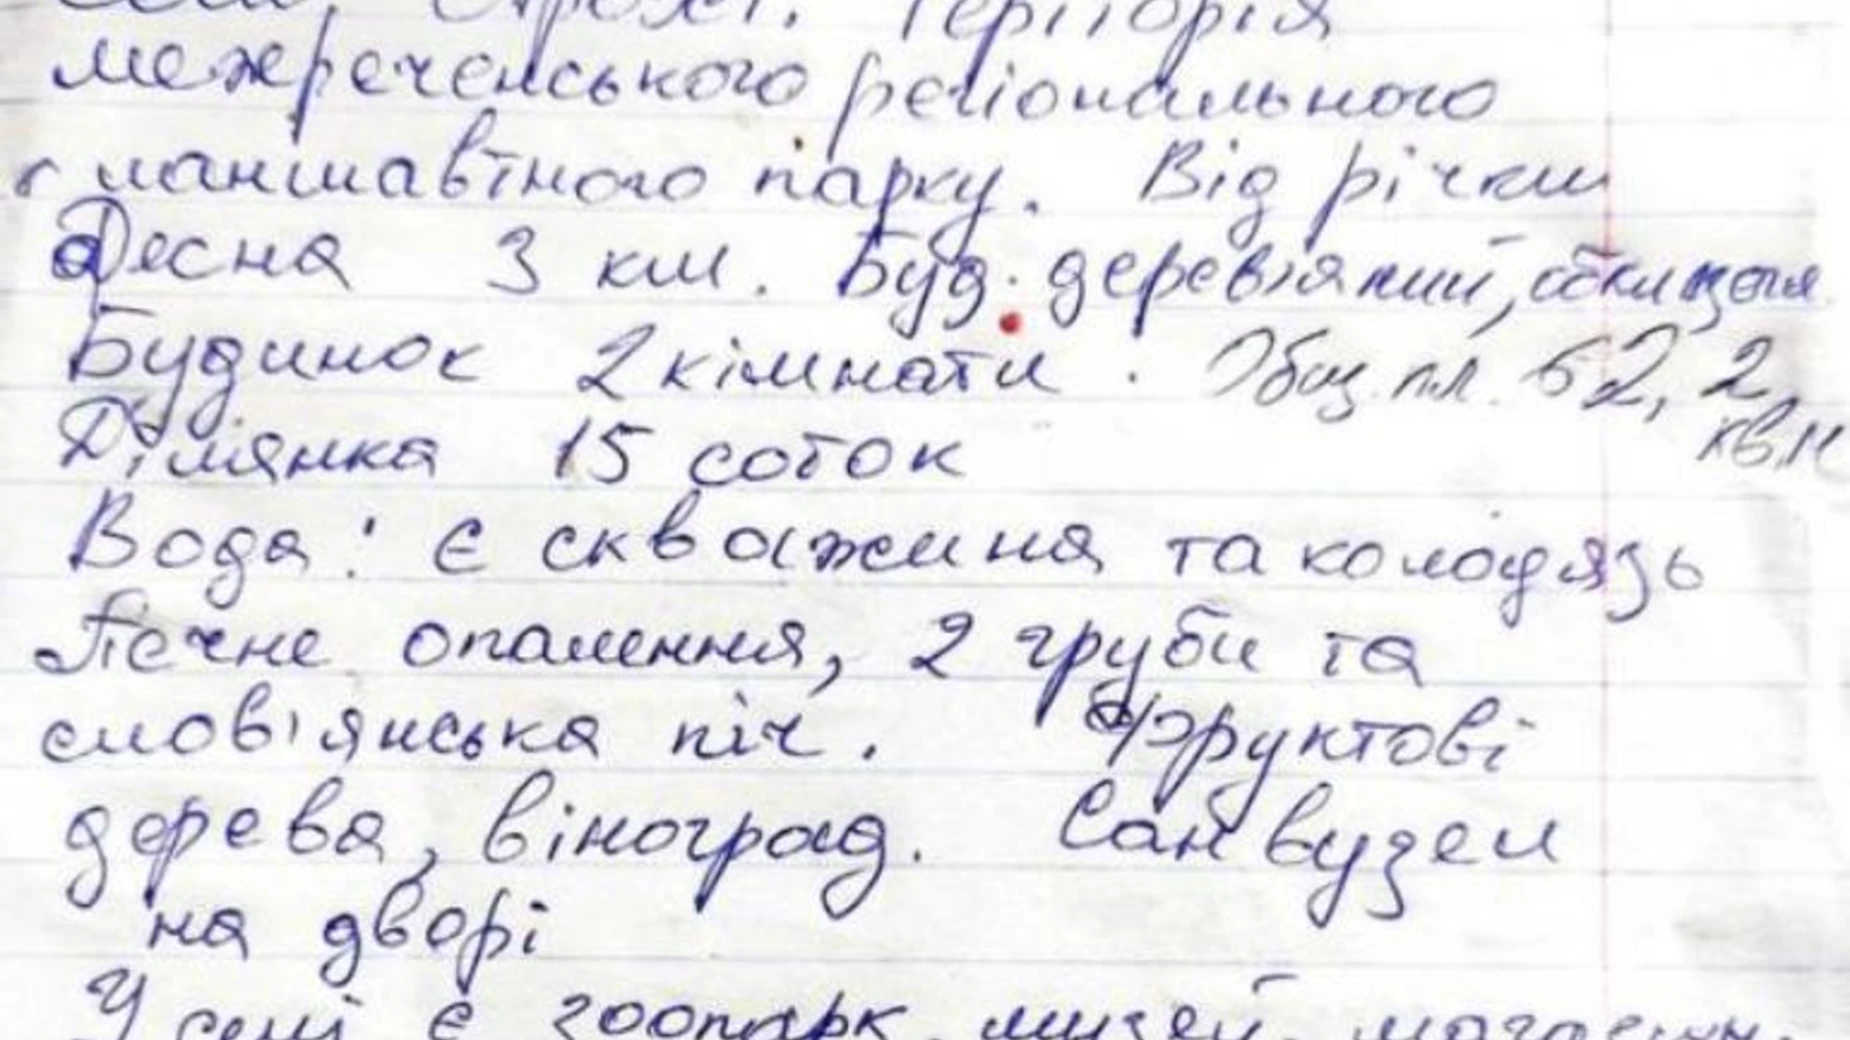 Територія
межреченського регіонального
ланшавтного парку. Від річки
Десна 3 км. Буд. дерев'яний,
Будинок 2 кімнати. Общ. пл. 62,2
кв.м
Ділянка 15 соток
Вода: є скважина та колодязь
Печне опалення, 2 груби та
слов'янська піч. фруктові
дерева, віноград. Сан вузел
на дворі
У селі є зоопарк, музей,